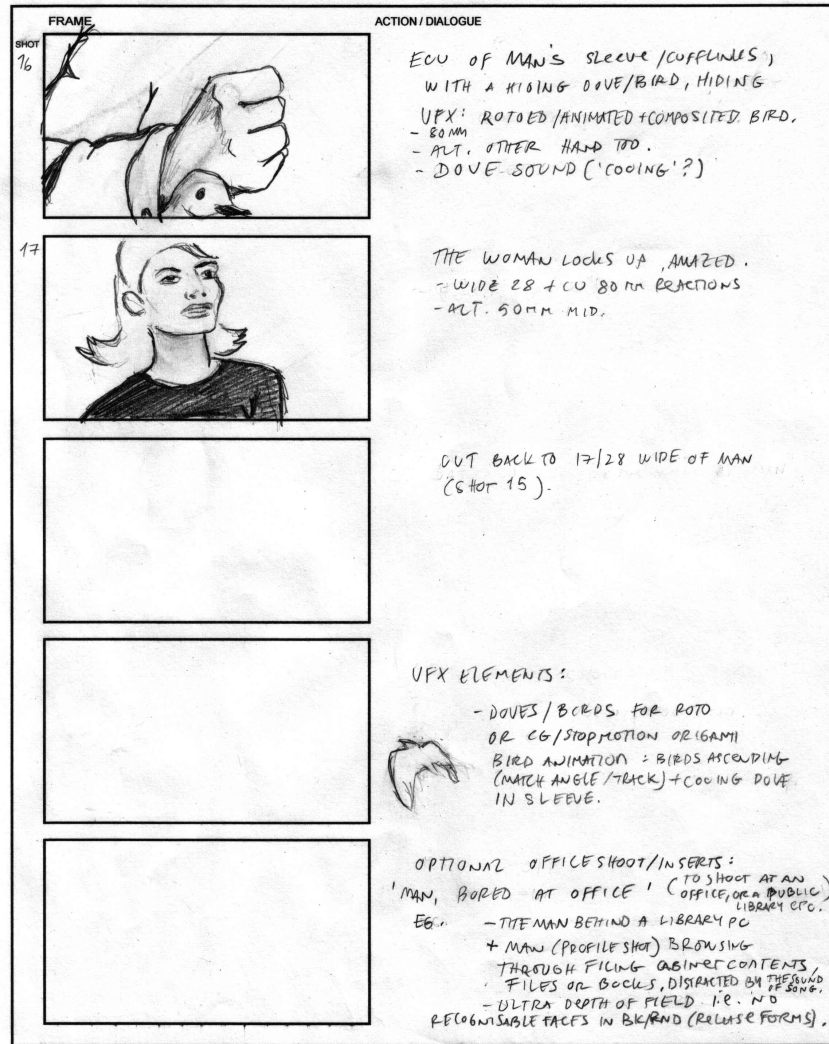 FRAME
ACTION / DIALOGUE
SHOT
16
ECU OF MAN'S SLEEVE / CUFFLINKS,
WITH A HIDING DOVE/BIRD, HIDING
VFX: ROTOED/ANIMATED + COMPOSITED BIRD.
- 80MM
- ALT. OTHER HAND TOO.
- DOVE SOUND ('COOING'?)
17
THE WOMAN LOOKS UP, AMAZED.
- WIDE 28 + CU 80MM REACTIONS
- ALT. 50MM MID.
CUT BACK TO 17/28 WIDE OF MAN
(SHOT 15).
VFX ELEMENTS:
- DOVES/BIRDS FOR ROTO
OR CG/STOPMOTION ORIGAMI
BIRD ANIMATION : BIRDS ASCENDING
(MATCH ANGLE/TRACK) + COOING DOVE
IN SLEEVE.
OPTIONAL OFFICE SHOOT/INSERTS:
'MAN, BORED AT OFFICE' (TO SHOOT AT AN
OFFICE, OR A PUBLIC
LIBRARY C PC.)
EG. - THE MAN BEHIND A LIBRARY PC
+ MAN (PROFILE SHOT) BROWSING
THROUGH FILING CABINET CONTENTS,
FILES OR BOOKS, DISTRACTED BY THE SOUND
OF SONG.
- ULTRA DEPTH OF FIELD I.E. NO
RECOGNISABLE FACES IN BK/RND (RELEASE FORMS).